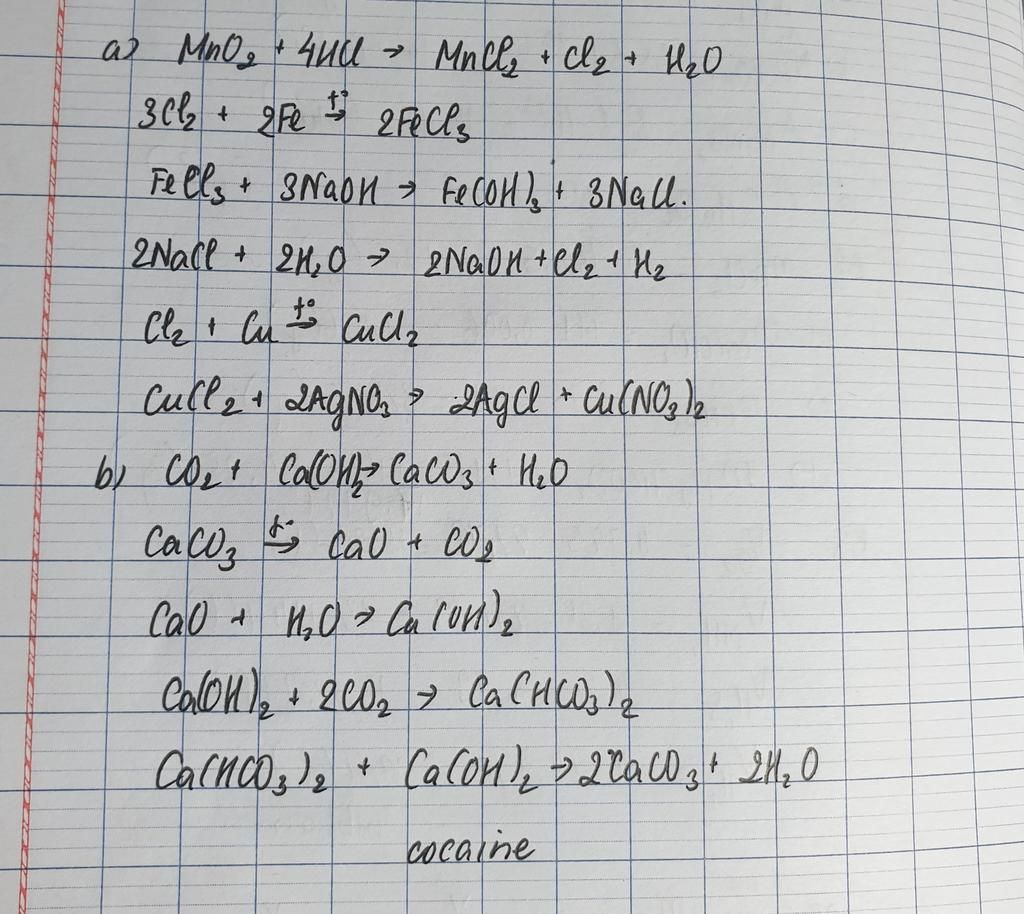 a) MnO₂ + 4HCl → MnCl₂ + Cl₂ + H₂O
3Cl₂ + 2Fe t° → 2FeCl₃
FeCl₃ + 3NaOH → Fe(OH)₃ + 3NaCl.
2NaCl + 2H₂O → 2NaOH + Cl₂ + H₂
Cl₂ + Cu t° → CuCl₂
CuCl₂ + 2AgNO₃ → 2AgCl + Cu(NO₃)₂
b) CO₂ + Ca(OH)₂ → CaCO₃ + H₂O
CaCO₃ t° → CaO + CO₂
CaO + H₂O → Ca(OH)₂
Ca(OH)₂ + 2CO₂ → Ca(HCO₃)₂
Ca(HCO₃)₂ + Ca(OH)₂ → 2CaCO₃ + 2H₂O
cocaine